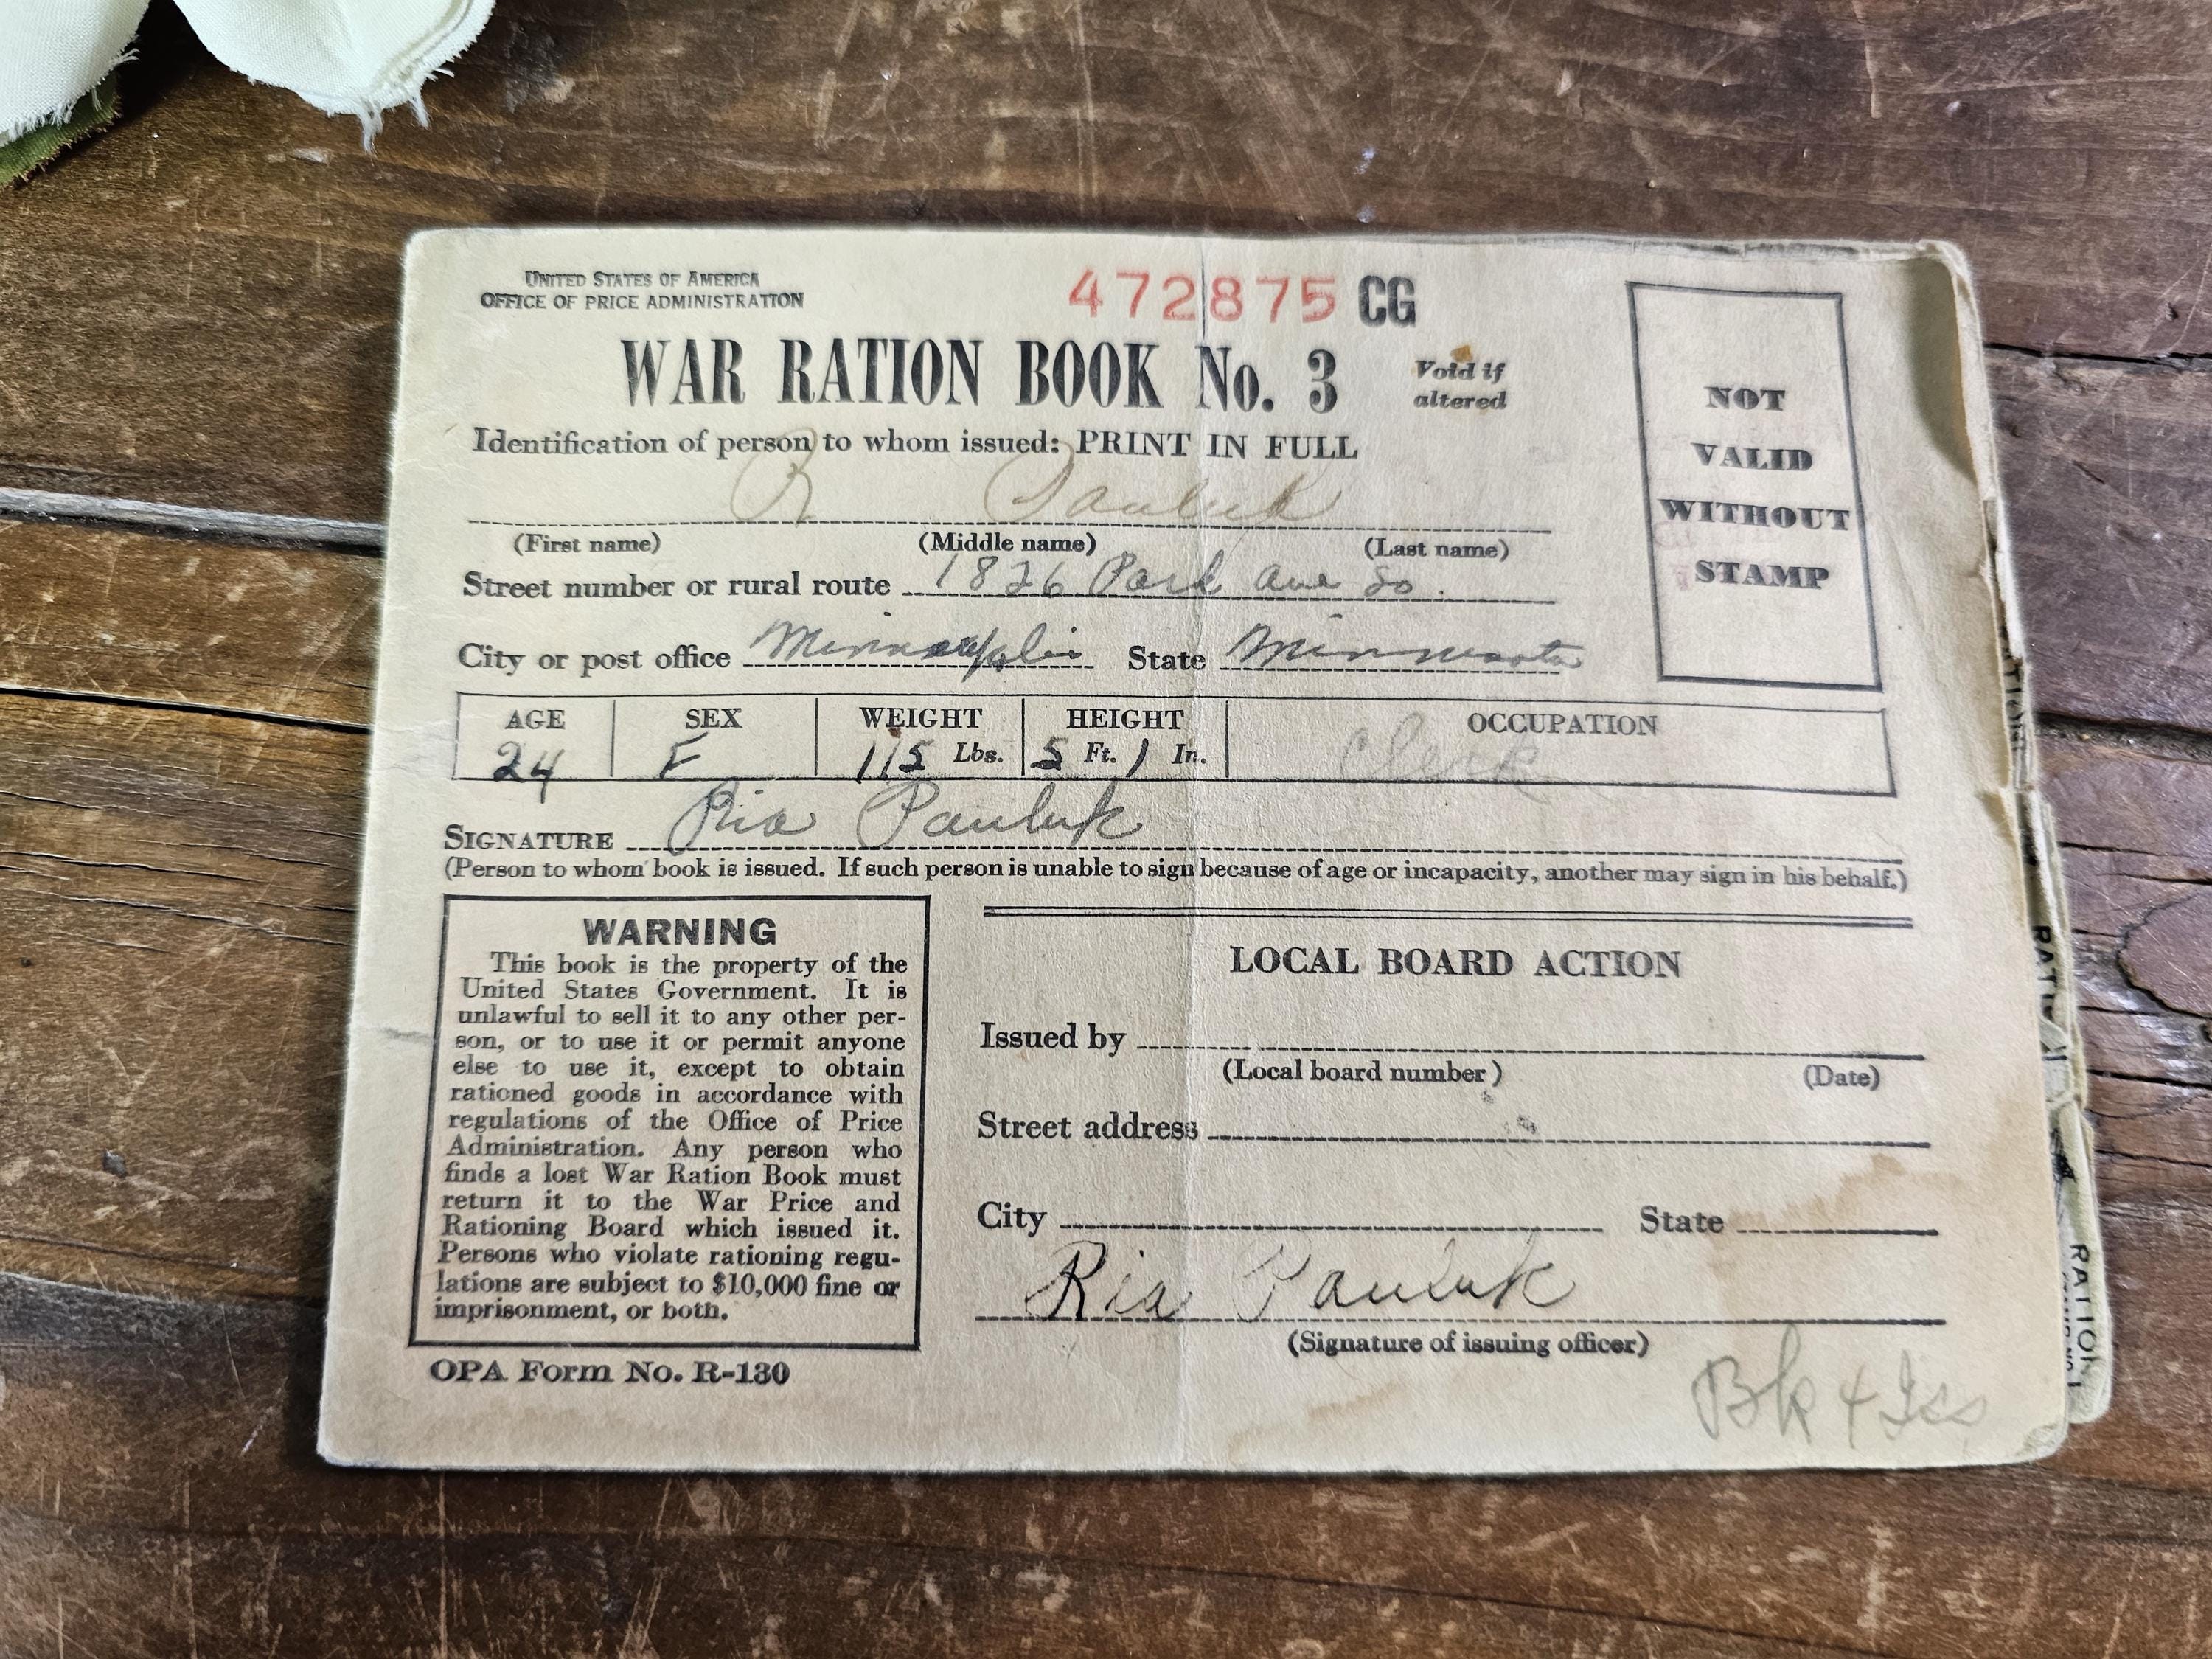 UNITED STATES OF AMERICA
OFFICE OF PRICE ADMINISTRATION
472875 CG
WAR RATION BOOK No. 3
Void if
altered
Identification of person to whom issued: PRINT IN FULL
R Pauluk
(First name) (Middle name) (Last name)
Street number or rural route 1826 Park Ave So.
City or post office Minneapolis State Minnesota
NOT
VALID
WITHOUT
STAMP
AGE SEX WEIGHT HEIGHT OCCUPATION
24 F 115 Lbs. 5 Ft. 1 In. Clerk
SIGNATURE Ria Pauluk
(Person to whom book is issued. If such person is unable to sign because of age or incapacity, another may sign in his behalf.)
WARNING
This book is the property of the
United States Government. It is
unlawful to sell it to any other per-
son, or to use it or permit anyone
else to use it, except to obtain
rationed goods in accordance with
regulations of the Office of Price
Administration. Any person who
finds a lost War Ration Book must
return it to the War Price and
Rationing Board which issued it.
Persons who violate rationing regu-
lations are subject to $10,000 fine or
imprisonment, or both.
OPA Form No. R-130
LOCAL BOARD ACTION
Issued by
(Local board number) (Date)
Street address
City State
Ria Pauluk
(Signature of issuing officer)
Bk 4 Iss
RATION